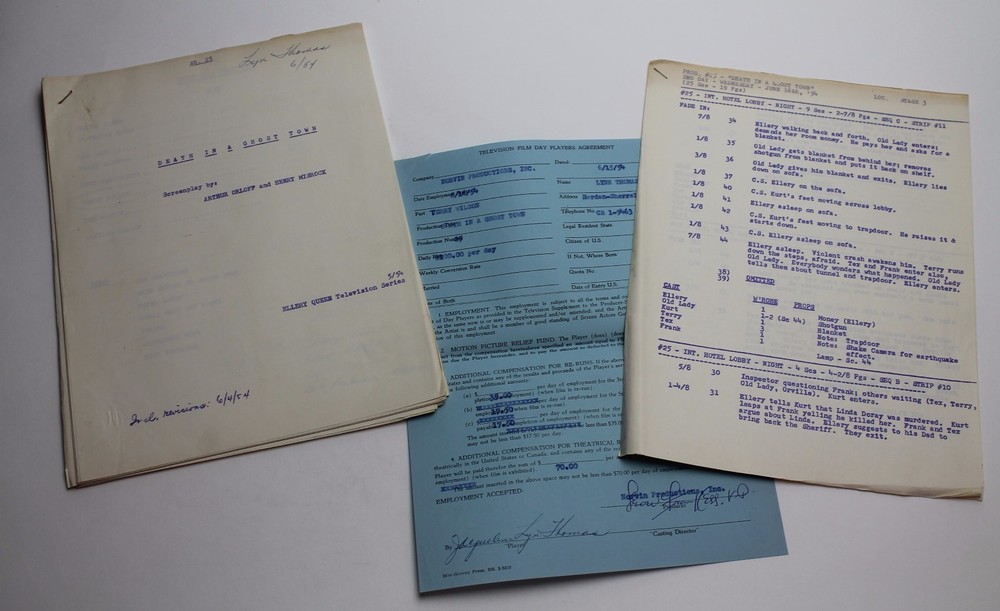 Lyn Thomas
6/54
DEATH IN A GHOST TOWN
Screenplay by:
ARTHUR ORLOFF and HENRY MISROCK
5/54
ELLERY QUEEN Television Series
Incl. revisions: 6/4/54
TELEVISION FILM DAY PLAYERS AGREEMENT
Company NORVIN PRODUCTIONS, INC. Dated: 6/15/54
Date Employment 6/16/54 Name LYNN THOMAS
Part TERRY WILDER Address
Production DEATH IN A GHOST TOWN Telephone No. CR 1-9463
Production Number Legal Resident State
Daily 00.00 per day Citizen of U.S.
Weekly Conversion Rate If Not, Where Born
Married Quota No.
Date of Birth Date of Entry U.S.
1. EMPLOYMENT. This employment is subject to all the terms and
of Day Players as provided in the Television Supplement to the Producer-
as the same now is or may be supplemented and/or amended; and the
the Artist is and shall be a member of good standing of Screen Actors
of this employment
2. MOTION PICTURE RELIEF FUND. The Player (does) (does
ADDITIONAL COMPENSATION FOR RE-RUNS. If the above
following additional amounts:
(a) $ 35.00 per day of employment for the
employment) (when film is re-run)
(b) per day of employment for the
(c) 17.50 per day of employment for
The amount less than $35.00
may not be less than $17.50 per day.
4. ADDITIONAL COMPENSATION FOR THEATRICAL
theatrically in the United States or Canada, and contains any of the
Player will be paid therefor the sum of $ 70.00 per
employment) (when film is exhibited).
inserted in the above space may not be less than $70.00 per day of
EMPLOYMENT ACCEPTED:
Norvin Productions, Inc.
By Jacquelin Lyn Thomas
Player Casting Director
PROD. #25 - "DEATH IN A GHOST TOWN"
2ND DAY - WEDNESDAY - JUNE 16th, '54 LOC. STAGE 3
(25 Scs - 15 Pgs)
#25 - INT. HOTEL LOBBY - NIGHT - 9 Scs - 2-7/8 Pgs - SEQ C - STRIP #11
FADE IN:
7/8 34 Ellery walking back and forth. Old Lady enters;
demands her room money. He pays her and asks for a
blanket.
1/8 35 Old Lady gets blanket from behind her; removes
shotgun from blanket and puts it back on shelf.
3/8 36 Old Lady gives him blanket and exits. Ellery lies
down on sofa.
1/8 37 C.S. Ellery on the sofa.
1/8 40 C.S. Kurt's feet moving across lobby.
1/8 41 Ellery asleep on sofa.
1/8 42 C.S. Kurt's feet moving to trapdoor. He raises it &
starts down.
1/8 43 C.S. Ellery asleep on sofa.
7/8 44 Ellery asleep. Violent crash awakens him. Terry runs
down the steps, afraid. Tex and Frank enter also,
Old Lady. Everybody wonders what happened. Old Lady
tells them about tunnel and trapdoor. Ellery enters.
38)
39) OMITTED
CAST W'ROBE PROPS
Ellery 1 Money (Ellery)
Old Lady 1 Shotgun
Kurt 1 Blanket
Terry 1-2 (Sc 44) Note: Trapdoor
Tex 1 Note: Shake Camera for earthquake
effect.
Frank 1 Lamp - Sc. 44
#25 - INT. HOTEL LOBBY - NIGHT - 4 Scs - 4-2/8 Pgs - SEQ B - STRIP #10
5/8 30 Inspector questioning Frank; others waiting (Tex, Terry,
Old Lady, Orville). Kurt enters.
1-4/8 31 Ellery tells Kurt that Linda Doray was murdered. Kurt
leaps at Frank yelling he killed her. Frank and Tex
argue about Linda. Ellery suggests to his Dad to
bring back the Sheriff. They exit.